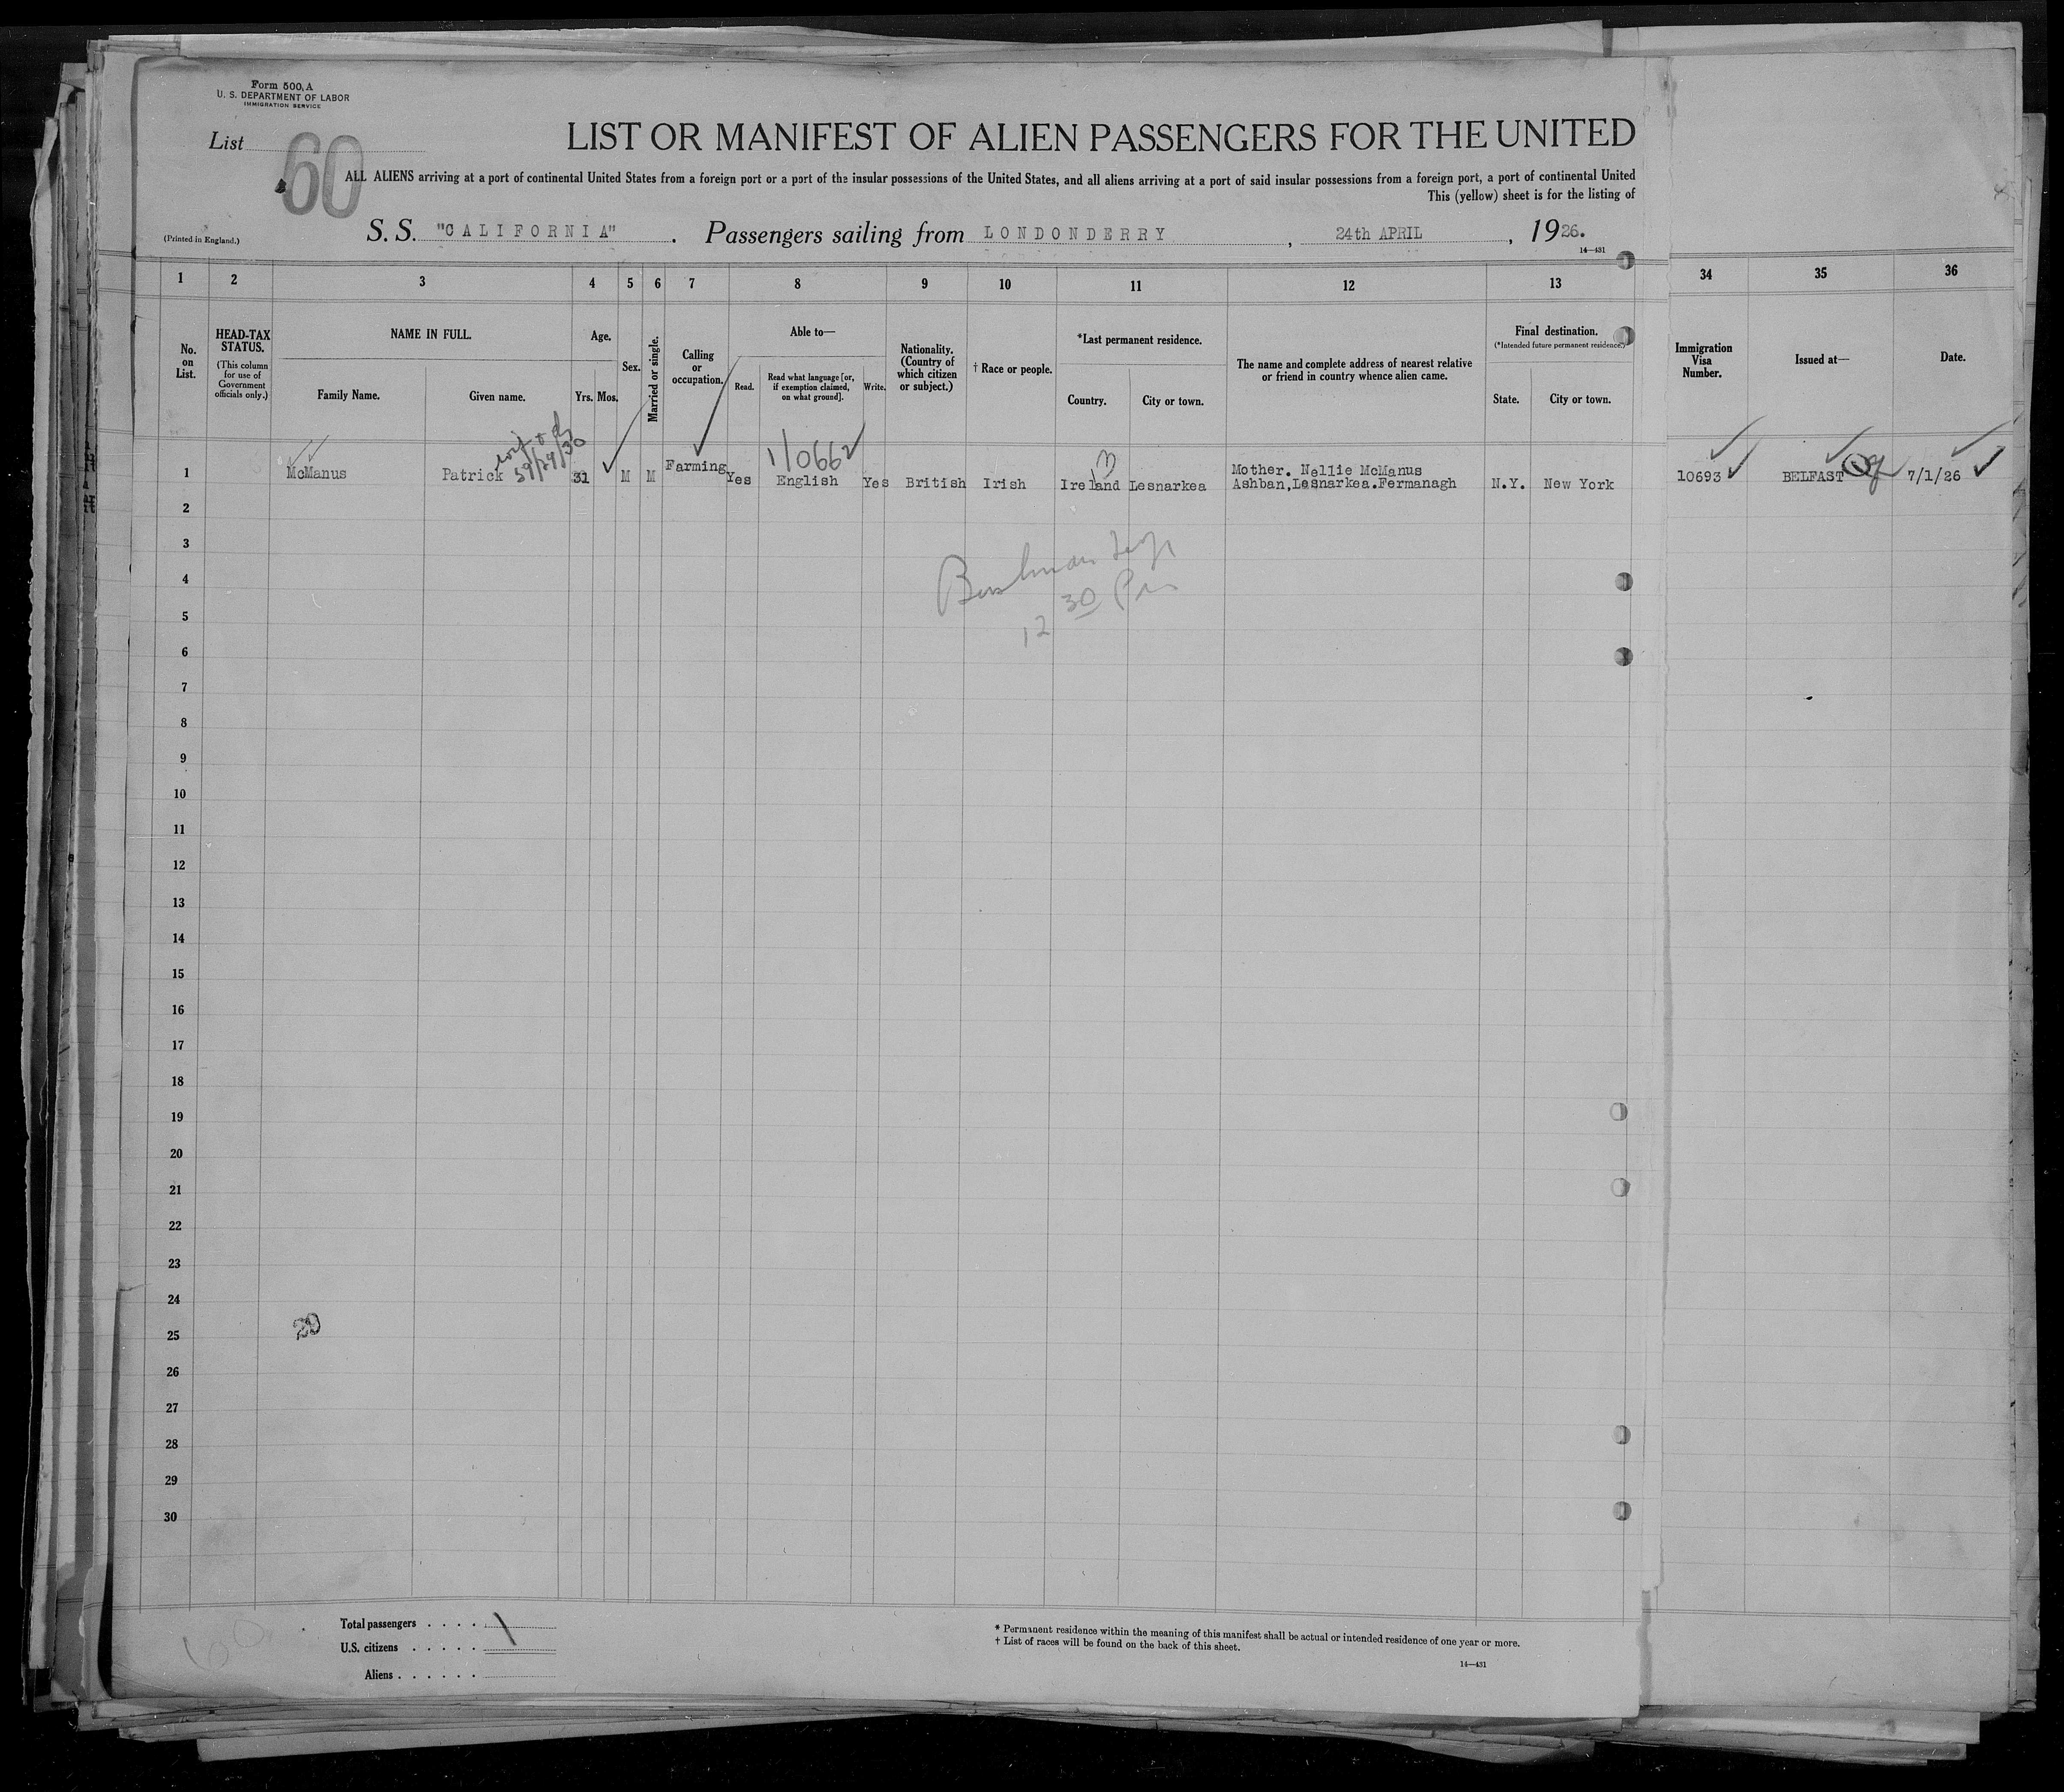 Form 500, A
U. S. DEPARTMENT OF LABOR
IMMIGRATION SERVICE
List 60
LIST OR MANIFEST OF ALIEN PASSENGERS FOR THE UNITED
ALL ALIENS arriving at a port of continental United States from a foreign port or a port of the insular possessions of the United States, and all aliens arriving at a port of said insular possessions from a foreign port, a port of continental United
This (yellow) sheet is for the listing of
(Printed in England.)
S. S. "CALIFORNIA". Passengers sailing from LONDONDERRY, 24th APRIL, 1926.
14—431
1 2 3 4 5 6 7 8 9 10 11 12 13 34 35 36
No. on List.
HEAD-TAX STATUS.
(This column for use of Government officials only.)
NAME IN FULL.
Family Name. Given name.
Age.
Yrs. Mos.
Sex.
Married or single.
Calling or occupation.
Able to—
Read. Read what language [or, if exemption claimed, on what ground]. Write.
Nationality. (Country of which citizen or subject.)
† Race or people.
*Last permanent residence.
Country. City or town.
The name and complete address of nearest relative or friend in country whence alien came.
Final destination.
(*Intended future permanent residence.)
State. City or town.
Immigration Visa Number.
Issued at—
Date.
1/0662
1 McManus Patrick 31 M M Farming Yes English Yes British Irish Ireland Lesnarkea Mother. Nellie McManus
Ashban, Lesnarkea. Fermanagh N.Y. New York 10693 BELFAST 7/1/26
2
3
4
12 30 Pm
5
6
7
8
9
10
11
12
13
14
15
16
17
18
19
20
21
22
23
24
25
26
27
28
29
30
Total passengers . . . . 1
U.S. citizens . . . . .
Aliens . . . . . .
* Permanent residence within the meaning of this manifest shall be actual or intended residence of one year or more.
† List of races will be found on the back of this sheet.
14—431